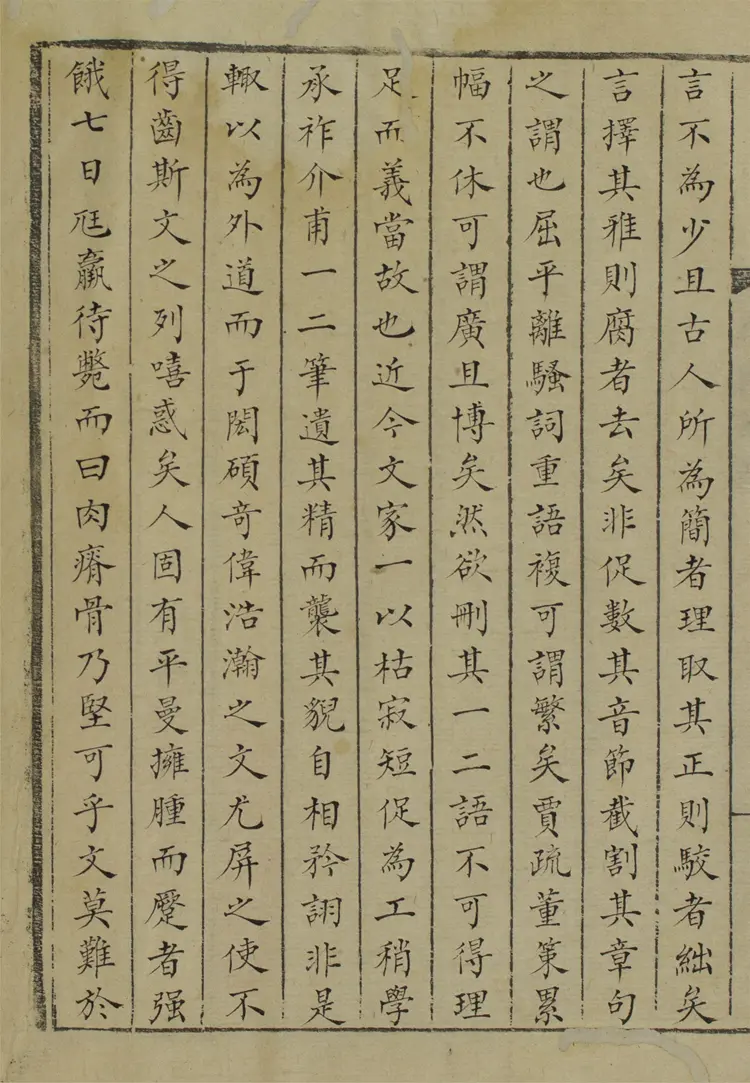 言不為少且古人所為簡者理取其正則駁者絀矣
言擇其雅則腐者去矣非促數其音節截割其章句
之謂也屈平離騷詞重語複可謂繁矣賈疏董策累
幅不休可謂廣且博矣然欲刪其一二語不可得理
足而義當故也近今文家一以枯寂短促為工稍學
承祚介甫一二筆遺其精而襲其貌自相矜詡非是
輙以為外道而于閎碩奇偉浩瀚之文尤屏之使不
得齒斯文之列嘻惑矣人固有平曼擁腫而蹷者强
餓七日尫羸待斃而曰肉瘠骨乃堅可乎文莫難於